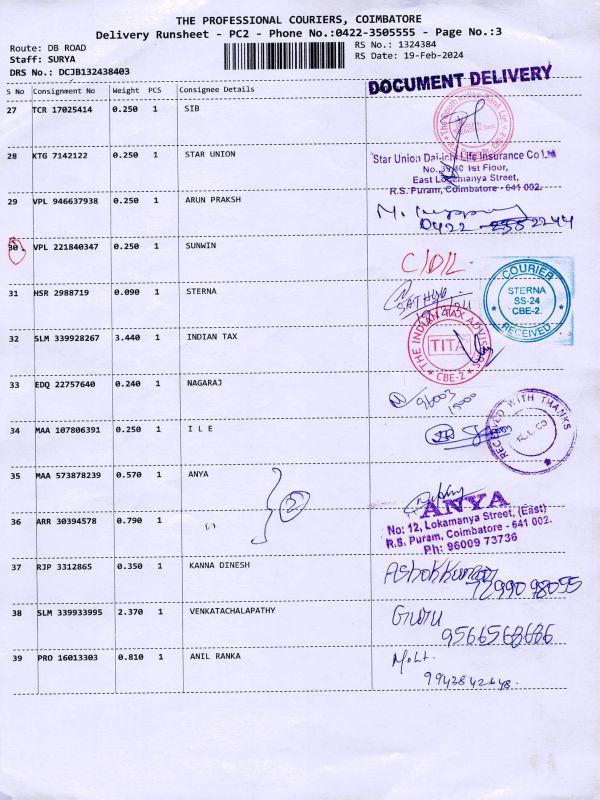 THE PROFESSIONAL COURIERS, COIMBATORE
Delivery Runsheet - PC2 - Phone No.:0422-3505555 - Page No.:3
Route: DB ROAD
RS No.: 1324384
Staff: SURYA
RS Date: 19-Feb-2024
DRS No.: DCJB132438403
DOCUMENT DELIVERY
S No Consignment No Weight PCS Consignee Details
27 TCR 17025414 0.250 1 SIB
28 KTG 7142122 0.250 1 STAR UNION
Star Union Dai-ichi Life Insurance Co Ltd
No. 39/40 1st Floor,
East Lokamanya Street,
R.S. Puram, Coimbatore - 641 002.
29 VPL 946637938 0.250 1 ARUN PRAKSH
30 VPL 221840347 0.250 1 SUNWIN
31 HSR 2988719 0.090 1 STERNA
SATHYA
COURIER
STERNA
SS-24
CBE-2.
RECEIVED
32 SLM 339928267 3.440 1 INDIAN TAX
THE INDIAN TAX ADVISER
TITA
CBE-2
33 EDQ 22757640 0.240 1 NAGARAJ
34 MAA 107806391 0.250 1 I L E
RECEIVED WITH THANKS
35 MAA 573878239 0.570 1 ANYA
2
ANYA
No: 12, Lokamanya Street, (East)
R.S. Puram, Coimbatore - 641 002.
Ph: 96009 73736
36 ARR 30394578 0.790 1 "
37 RJP 3312865 0.350 1 KANNA DINESH
Ashok Kumar
7299098055
38 SLM 339933995 2.370 1 VENKATACHALAPATHY
Guru
9566568686
39 PRO 16013303 0.810 1 ANIL RANKA
9943842648.